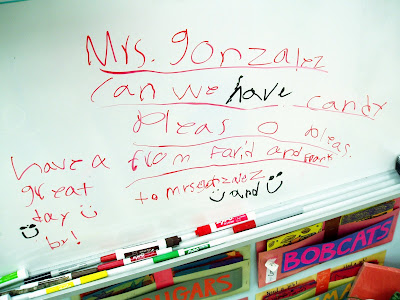 Mrs. gonzalez
Can we have candy
Pleas O Pleas.
from Farid and Frank
to mrs gonzalez
and
have a
great
day
by!
BOBCATS
COUGARS